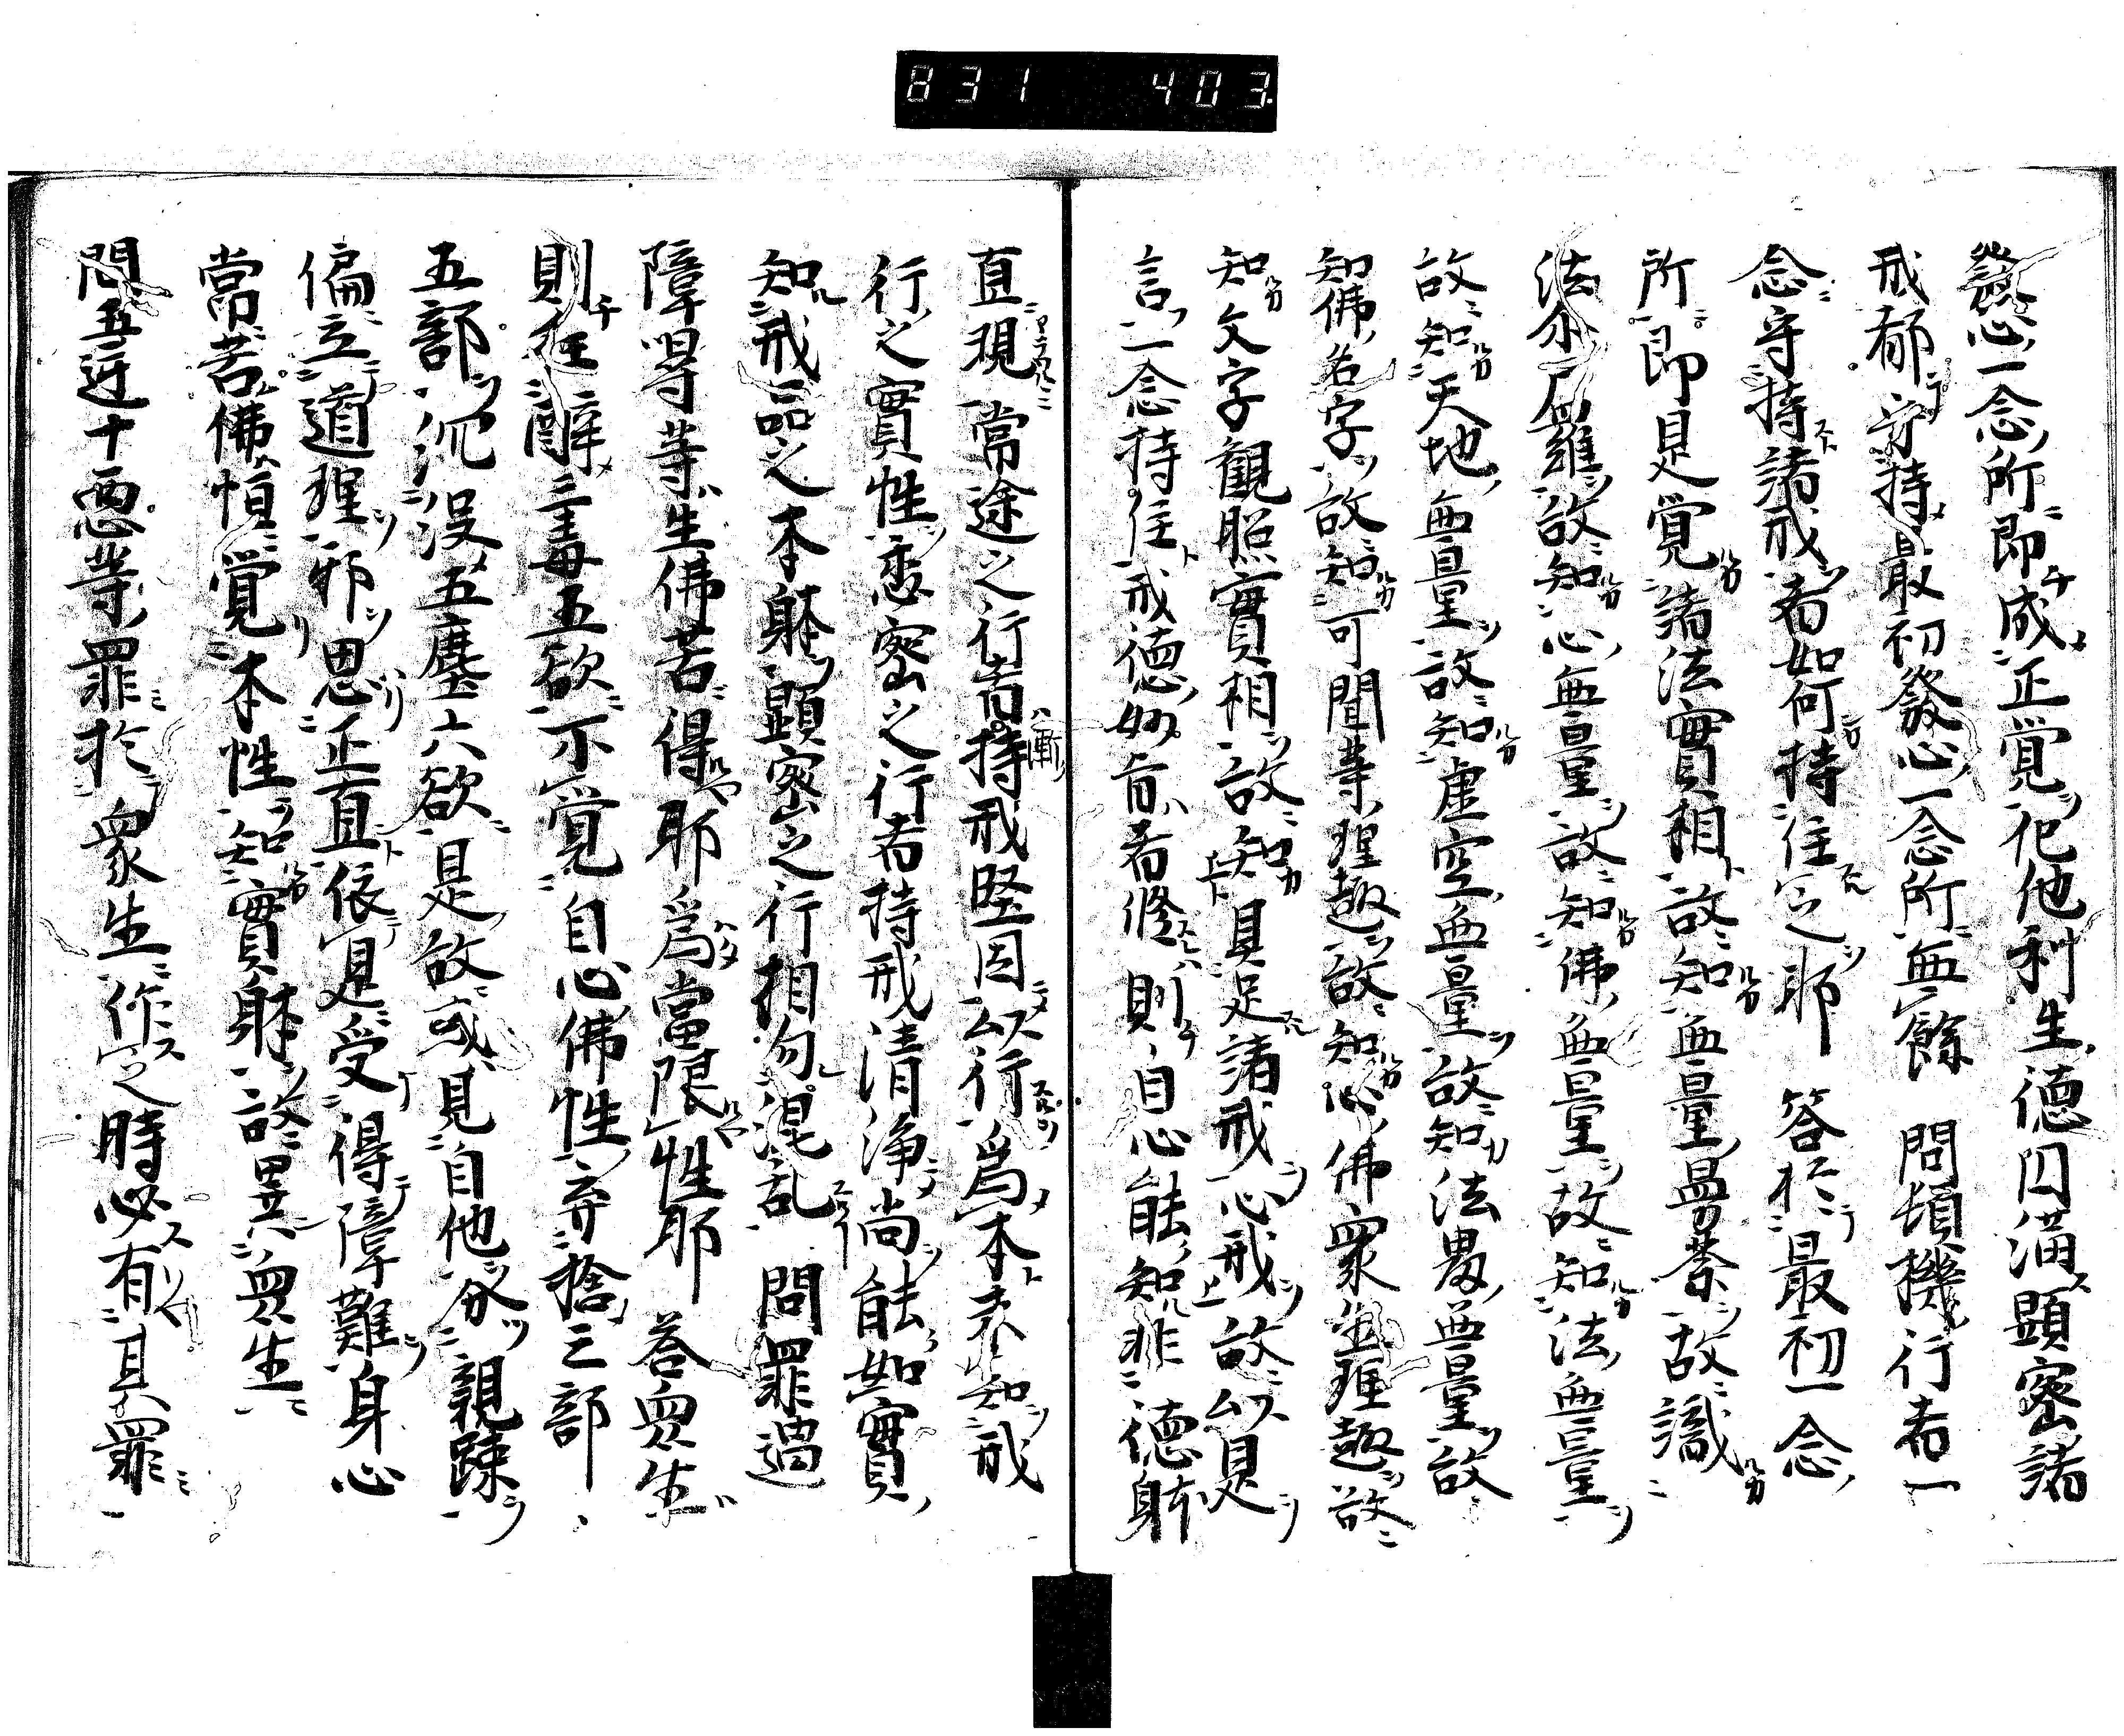 831 403
發心一念所即成正覚化他利生德円満顕密諸
戒都守持最初發心一念所無餘 問頓機行者一
念守持諸戒者如何持住之耶 答於最初一念
所即是覚諸法實相故知無量曼荼故識
法尓尸羅故知心無量故知佛無量故知法無量
故知天地無量故知虚空無量故知法界無量故
知佛名字故知可聞等理趣故知心佛衆生理趣故
知文字観照實相故知具足諸戒心戒故以是
言一念持住戒德妙旨者修則自心能知非德躰
直現常途之行者持戒堅固以行為本未知戒
行之實性悉密之行者持戒清浄尚能如實
知戒品之本躰顕密之行相勿混乱 問罪過
障㝵等生佛苦得耶為當限性耶 答衆生
則狂醉三毒五欲不覚自心佛性弃捨三部
五部沉没五塵六欲是故或見自他分親踈
偏立道理邪思正直依是受得障難身心
常苦佛恒覚本性知實躰故異衆生
問五逆十悪等罪於衆生作之時必有其罪